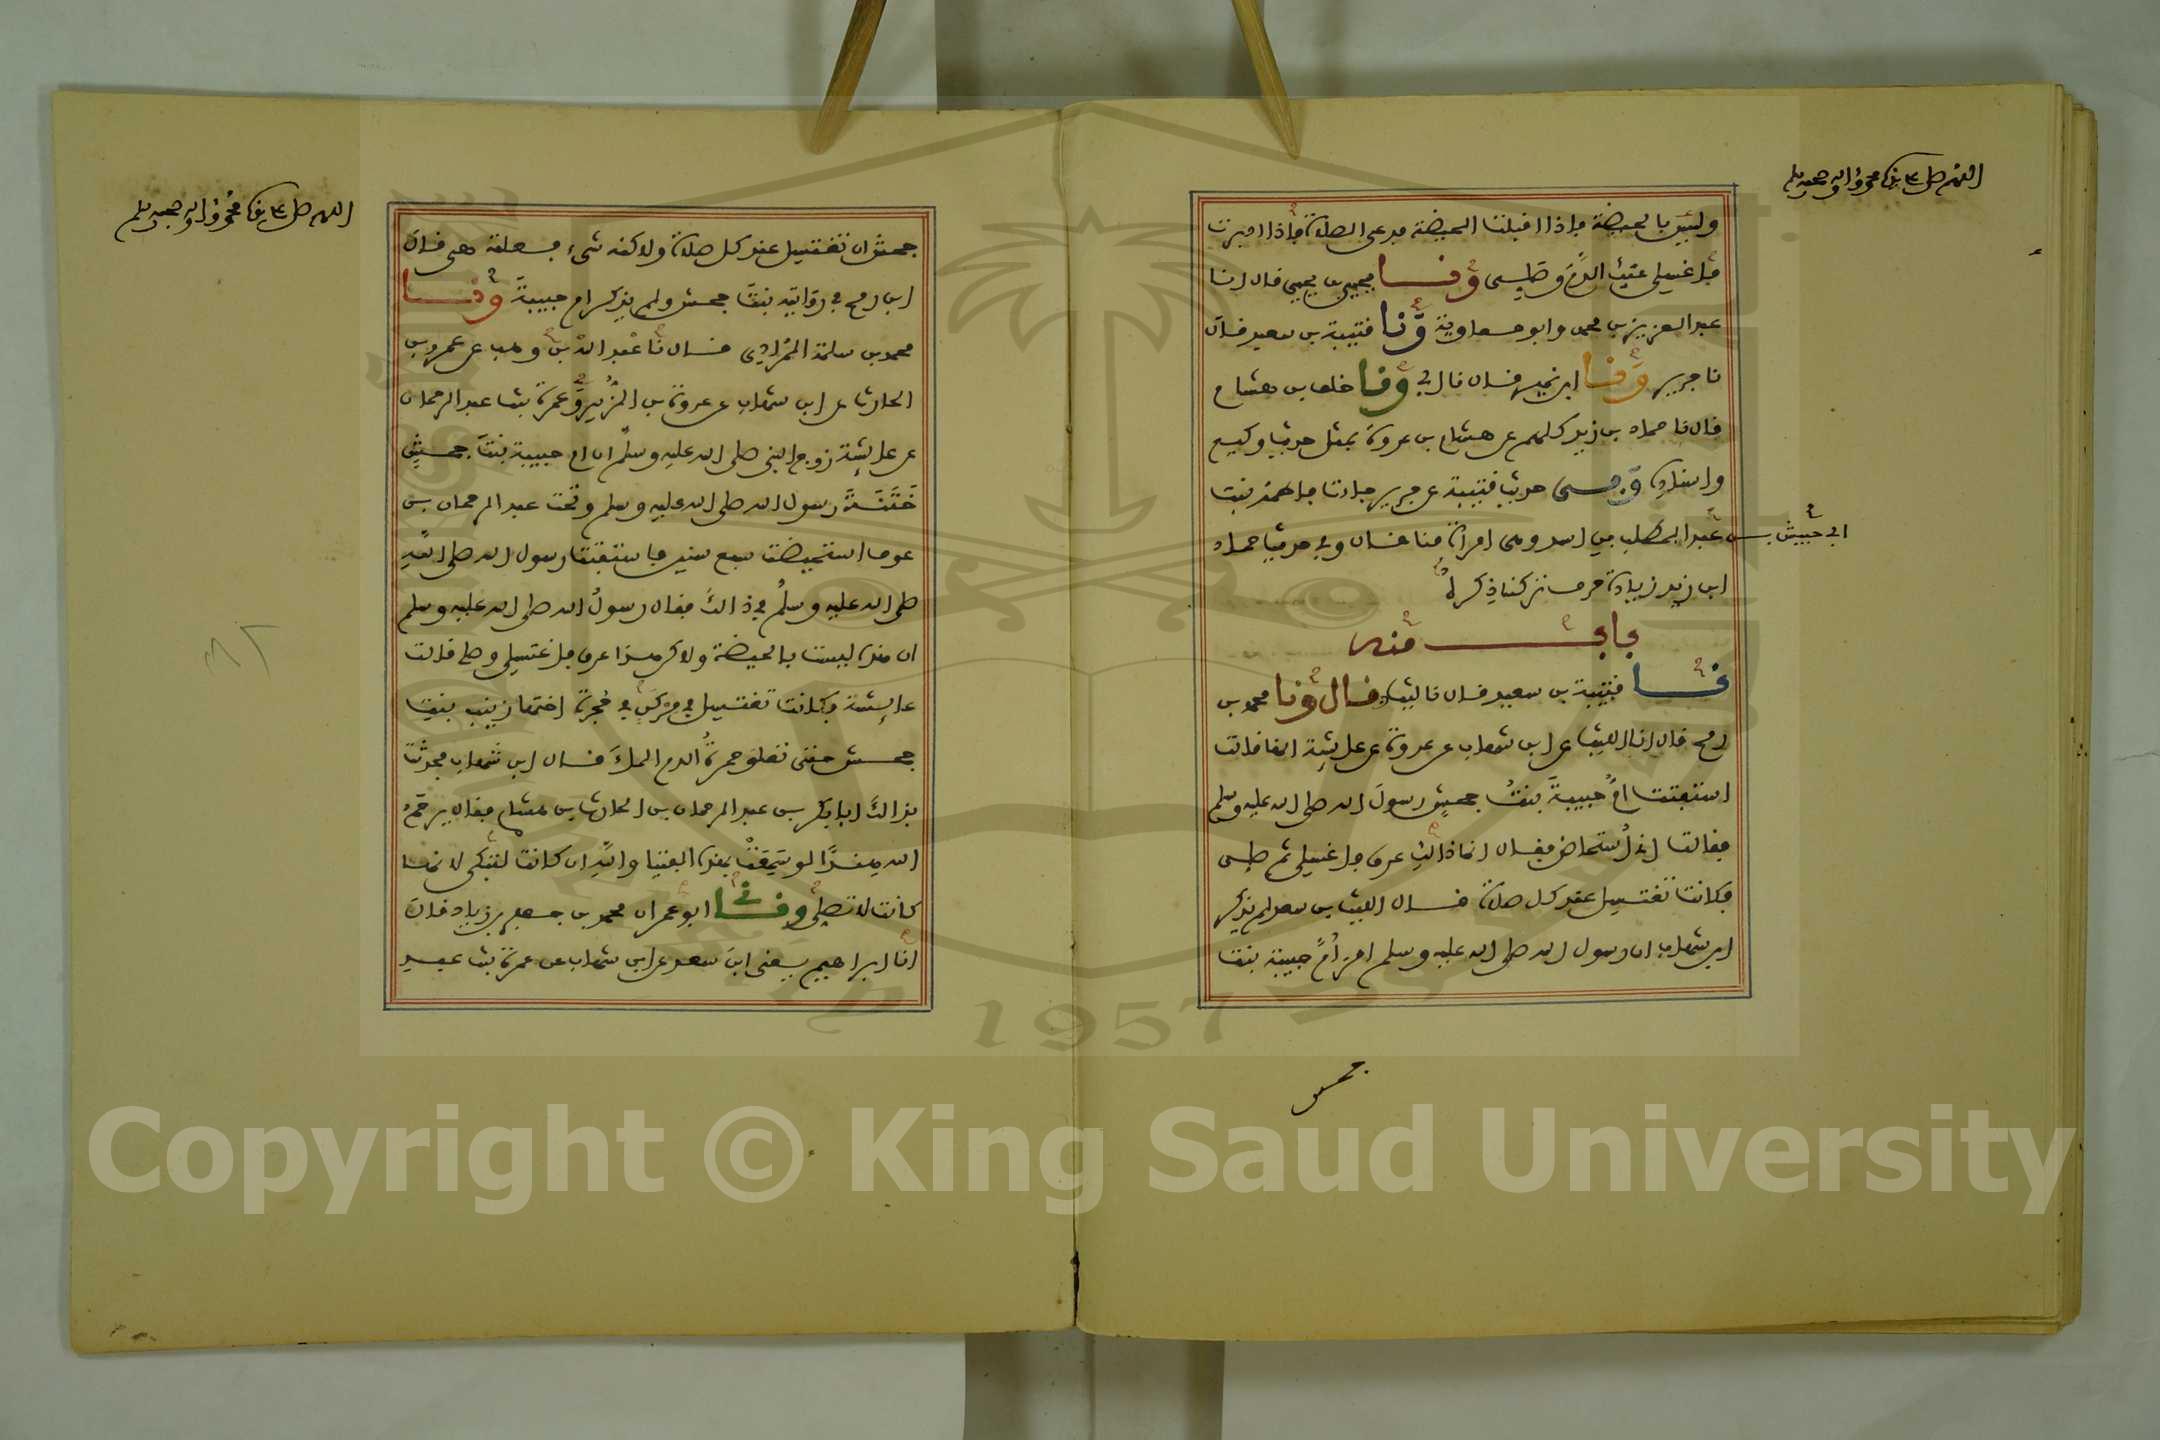 اللهم صل على سيدنا محمد وءاله وصحبه وسلم
وليس بالحيضة فإذا اقبلت الحيضة فدعى الصلاة فإذا ادبرت
فاغسلى عنك الدم وصلى وثنا يحيى بن يحيى قال انا
عبد العزيز بن محمد وابو معاوية وثنا قتيبة بن سعيد قال
نا جرير وثنا ابن نمير قال نا ابى وثنا خلف بن هشام
قال نا حماد بن زيد كلهم عن هشام بن عروة بمثل حديث وكيع
واسناده وفى حديث قتيبة عن جرير جاءت فاطمة بنت
ابى حبيش بن عبد المطلب بن اسد وهى امرأة منا قال وفى حديث حماد
ابن زيد زيادة حرف تركنا ذكره
باب منه
ثنا قتيبة بن سعيد قال نا ليث قال وثنا محمد بن
رمح قال انا الليث عن ابن شهاب عن عروة عن عايشة انها قالت
استفتت ام حبيبة بنت جحش رسول الله صلى الله عليه وسلم
فقالت انى أستحاض فقال انما ذالك عرق فاغسلى ثم صلى
فكانت تغتسل عند كل صلاة قال الليث بن سعد لم يذكر
ابن شهاب ان رسول الله صلى الله عليه وسلم امر أم حبيبة بنت
جحش
اللهم صل على سيدنا محمد وءاله وصحبه وسلم
جحش ان تغتسل عند كل صلاة ولاكنه شىء فعلته هى قال
ابن رمح فى روايته بنت جحش ولم يذكر ام حبيبة وثنا
محمد بن سلمة المرادى قال نا عبد الله بن وهب عن عمرو بن
الحارث عن ابن شهاب عن عروة بن الزبير وعمرة بنت عبد الرحمان
عن عايشة زوج النبى صلى الله عليه وسلم ان ام حبيبة بنت جحش
ختنة رسول الله صلى الله عليه وسلم وتحت عبد الرحمان بن
عوف استحيضت سبع سنين فاستفتت رسول الله صلى الله
صلى الله عليه وسلم فى ذالك فقال رسول الله صلى الله عليه وسلم
ان هذه ليست بالحيضة ولاكن هذا عرق فاغتسلى وصلى قالت
عايشة فكانت تغتسل فى مركن فى حجرة اختها زينب بنت
جحش حتى تعلو حمرة الدم الماء قال ابن شهاب فحدثت
بذالك ابا بكر بن عبد الرحمان بن الحارث بن هشام فقال يرحم
الله هندا لو سمعت بهذه الفتيا والله ان كانت لتبكى لانها
كانت لا تصلى وثنى ابو عمران محمد بن جعفر بن زياد قال
انا ابراهيم يعنى ابن سعد عن ابن شهاب عن عمرة بنت عبد
Copyright © King Saud University
1957